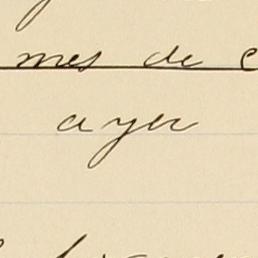 mes de
ayer